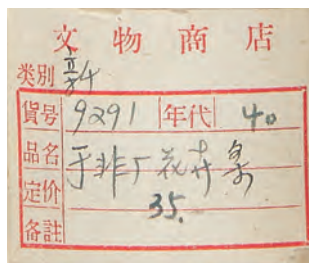 文物商店
类别
貨号 9291 年代 40
品名 于非厂花卉条
定价 35.
备註